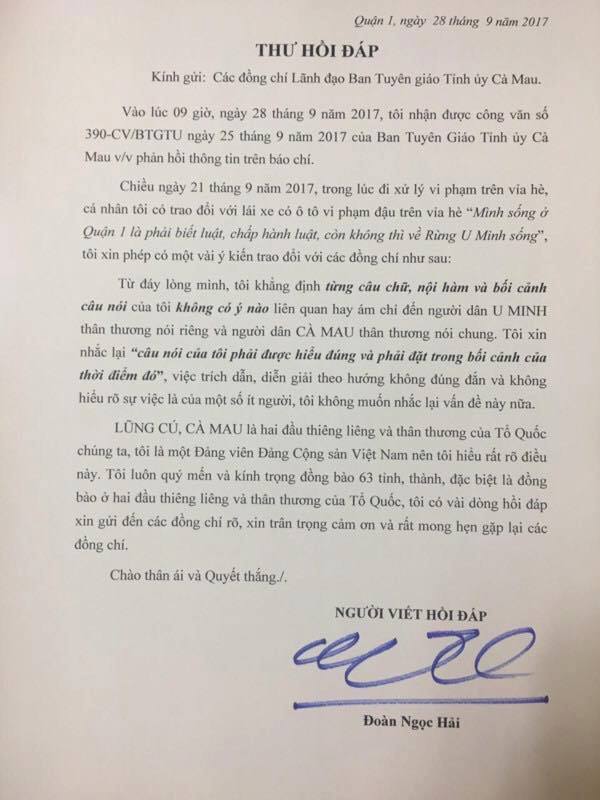 Quận 1, ngày 28 tháng 9 năm 2017
THƯ HỒI ĐÁP
Kính gửi: Các đồng chí Lãnh đạo Ban Tuyên giáo Tỉnh ủy Cà Mau.
Vào lúc 09 giờ, ngày 28 tháng 9 năm 2017, tôi nhận được công văn số
390-CV/BTGTU ngày 25 tháng 9 năm 2017 của Ban Tuyên Giáo Tỉnh ủy Cà
Mau v/v phản hồi thông tin trên báo chí.
Chiều ngày 21 tháng 9 năm 2017, trong lúc đi xử lý vi phạm trên vỉa hè,
cá nhân tôi có trao đổi với lái xe có ô tô vi phạm đậu trên vỉa hè “Mình sống ở
Quận 1 là phải biết luật, chấp hành luật, còn không thì về Rừng U Minh sống”,
tôi xin phép có một vài ý kiến trao đổi với các đồng chí như sau:
Từ đáy lòng mình, tôi khẳng định từng câu chữ, nội hàm và bối cảnh
câu nói của tôi không có ý nào liên quan hay ám chỉ đến người dân U MINH
thân thương nói riêng và người dân CÀ MAU thân thương nói chung. Tôi xin
nhắc lại “câu nói của tôi phải được hiểu đúng và phải đặt trong bối cảnh của
thời điểm đó”, việc trích dẫn, diễn giải theo hướng không đúng đắn và không
hiểu rõ sự việc là của một số ít người, tôi không muốn nhắc lại vấn đề này nữa.
LŨNG CÚ, CÀ MAU là hai đầu thiêng liêng và thân thương của Tổ Quốc
chúng ta, tôi là một Đảng viên Đảng Cộng sản Việt Nam nên tôi hiểu rất rõ điều
này. Tôi luôn quý mến và kính trọng đồng bào 63 tỉnh, thành, đặc biệt là đồng
bào ở hai đầu thiêng liêng và thân thương của Tổ Quốc, tôi có vài dòng hồi đáp
xin gửi đến các đồng chí rõ, xin trân trọng cảm ơn và rất mong hẹn gặp lại các
đồng chí.
Chào thân ái và Quyết thắng./.
NGƯỜI VIẾT HỒI ĐÁP
Đoàn Ngọc Hải